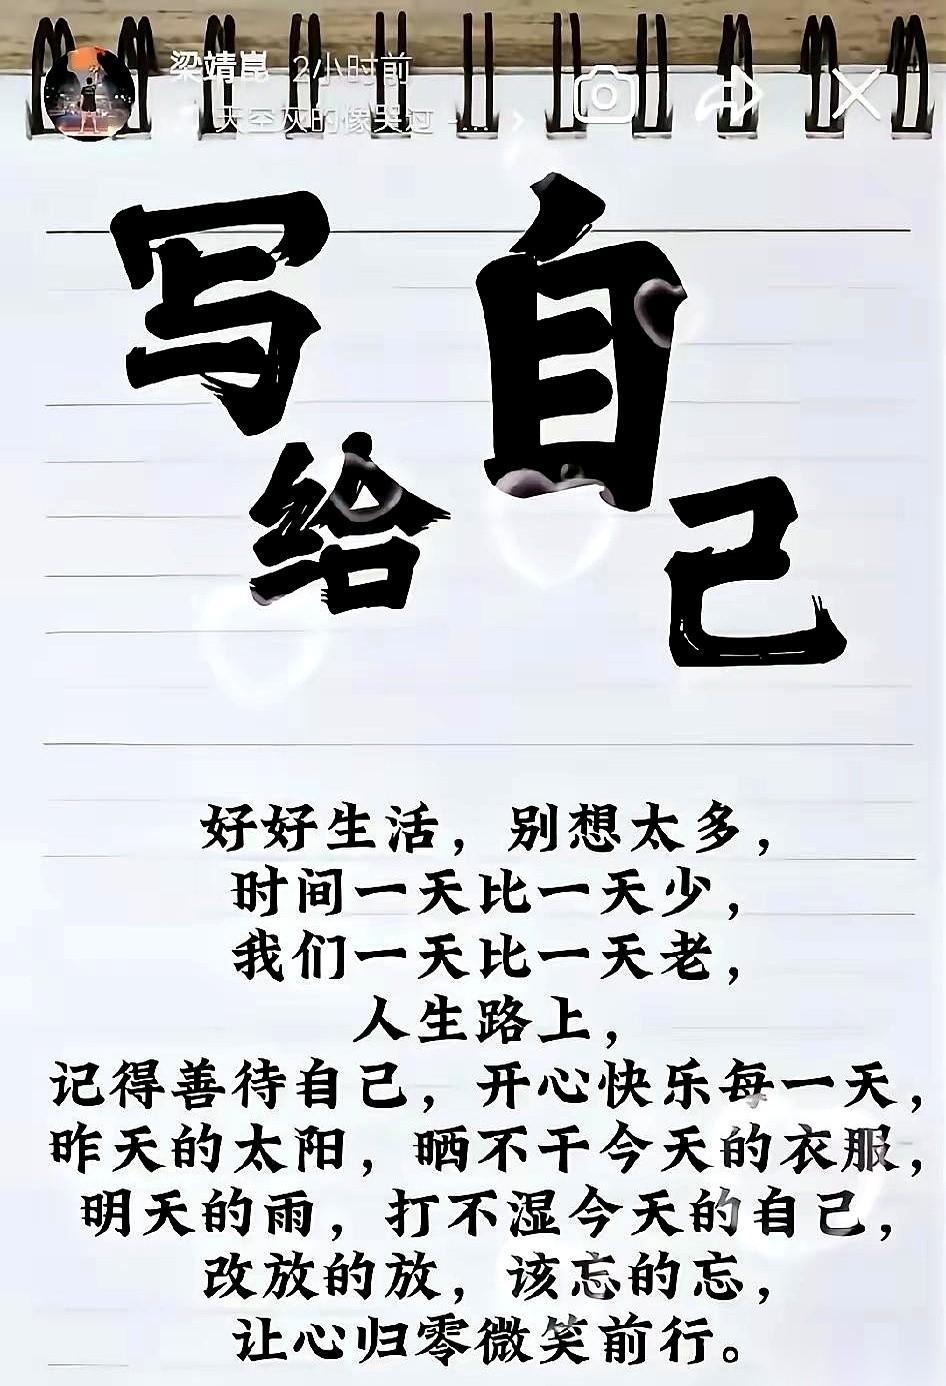 梁靖崑 2小时前
天空灰的像哭过 -...
写给自己
好好生活，别想太多，
时间一天比一天少，
我们一天比一天老，
人生路上，
记得善待自己，开心快乐每一天，
昨天的太阳，晒不干今天的衣服，
明天的雨，打不湿今天的自己，
改放的放，该忘的忘，
让心归零微笑前行。